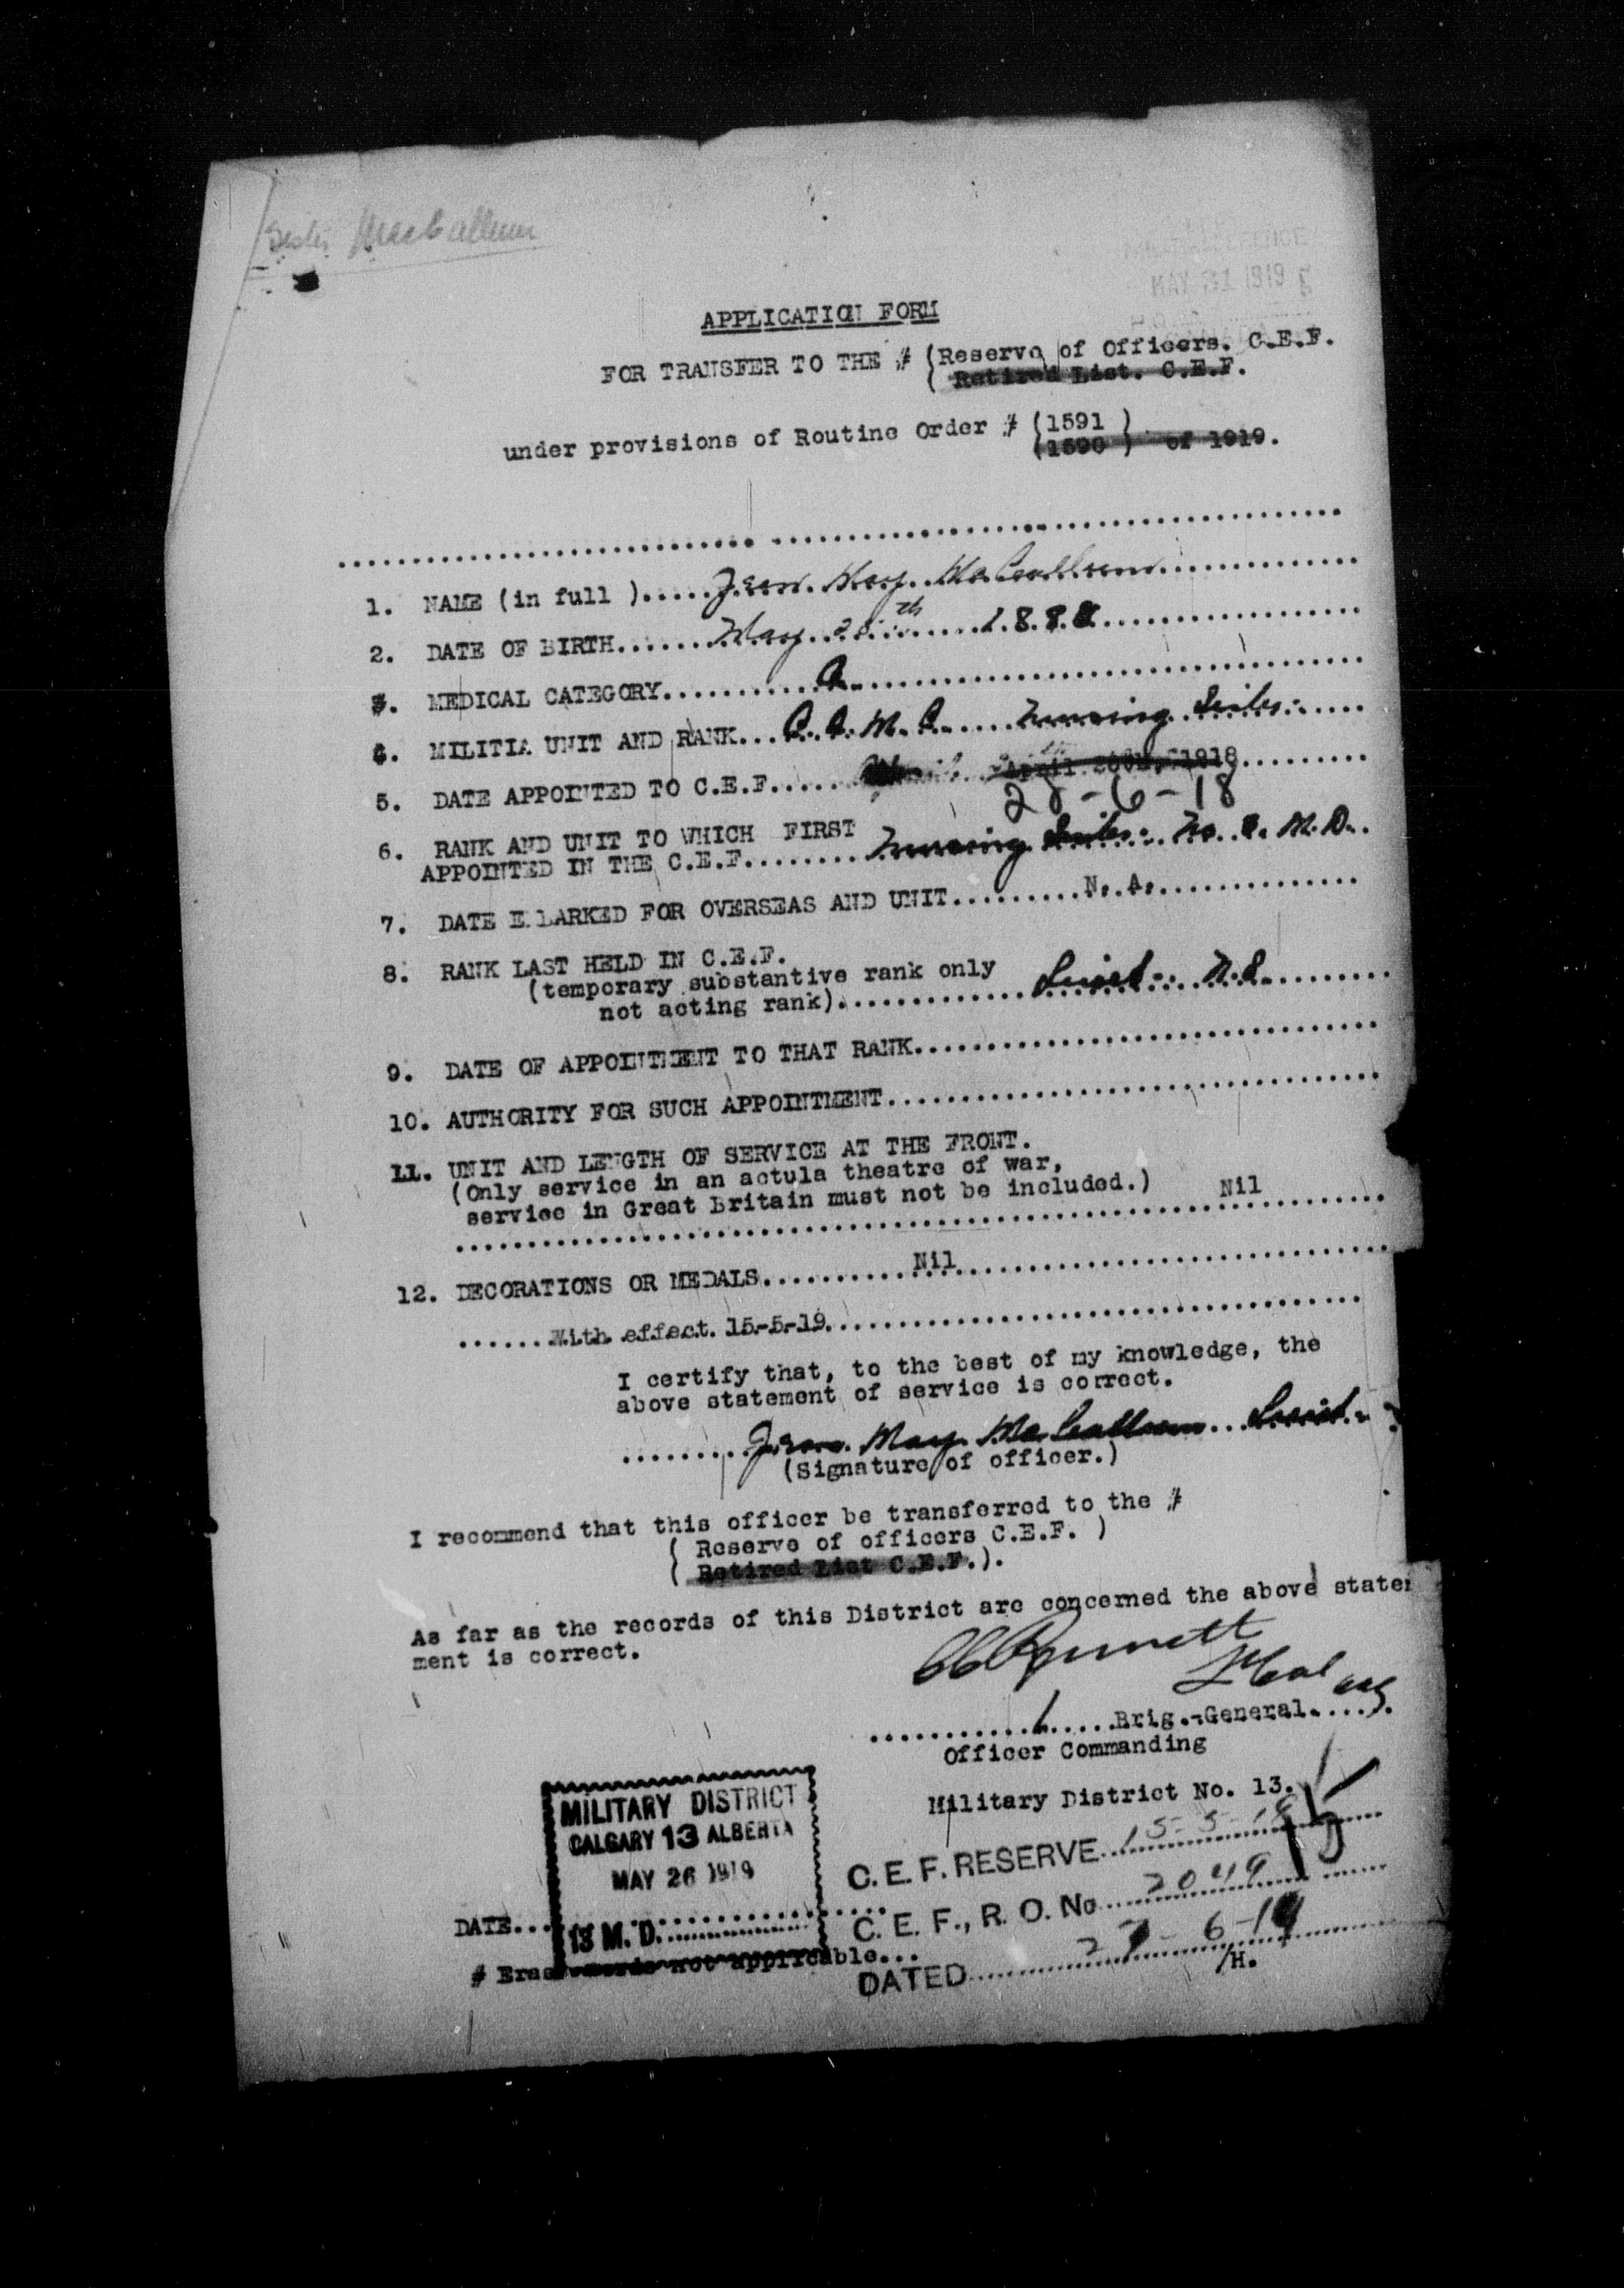 Sister MacCallum
MAY 31 1919
APPLICATION FORM
FOR TRANSFER TO THE # (Reserve of Officers. C.E.F.
( Retired List. C.E.F.
under provisions of Routine Order # (1591 )
(1590 ) of 1919.
1. NAME (in full )..... Jean May MacCallum
2. DATE OF BIRTH....... May th 188
3. MEDICAL CATEGORY........... A
4. MILITIA UNIT AND RANK... C.A.M.C. Nursing Sister
5. DATE APPOINTED TO C.E.F..... April 1918
28-6-18
6. RANK AND UNIT TO WHICH FIRST
APPOINTED IN THE C.E.F........ Nursing Sister No. M.D.
7. DATE E.BARKED FOR OVERSEAS AND UNIT.........N. A.
8. RANK LAST HELD IN C.E.F.
(temporary substantive rank only
not acting rank)............. Lieut. N.S.
9. DATE OF APPOINTMENT TO THAT RANK
10. AUTHORITY FOR SUCH APPOINTMENT
11. UNIT AND LENGTH OF SERVICE AT THE FRONT.
(Only service in an actula theatre of war,
service in Great Britain must not be included.) Nil
12. DECORATIONS OR MEDALS..........Nil
......With effect. 15-5-19
I certify that, to the best of my knowledge, the
above statement of service is correct.
Jean May MacCallum Lieut.
(Signature of officer.)
I recommend that this officer be transferred to the #
( Reserve of officers C.E.F. )
( Retired List C.E.F.).
As far as the records of this District are concerned the above state
ment is correct.
Brig.-General
Officer Commanding
Military District No. 13.
MILITARY DISTRICT
CALGARY 13 ALBERTA
MAY 26 1919
13 M. D.
C. E. F. RESERVE 15-5-19
C. E. F., R. O. No 2049
DATE
# Erase words not applicable...
DATED 27-6-19
/H.